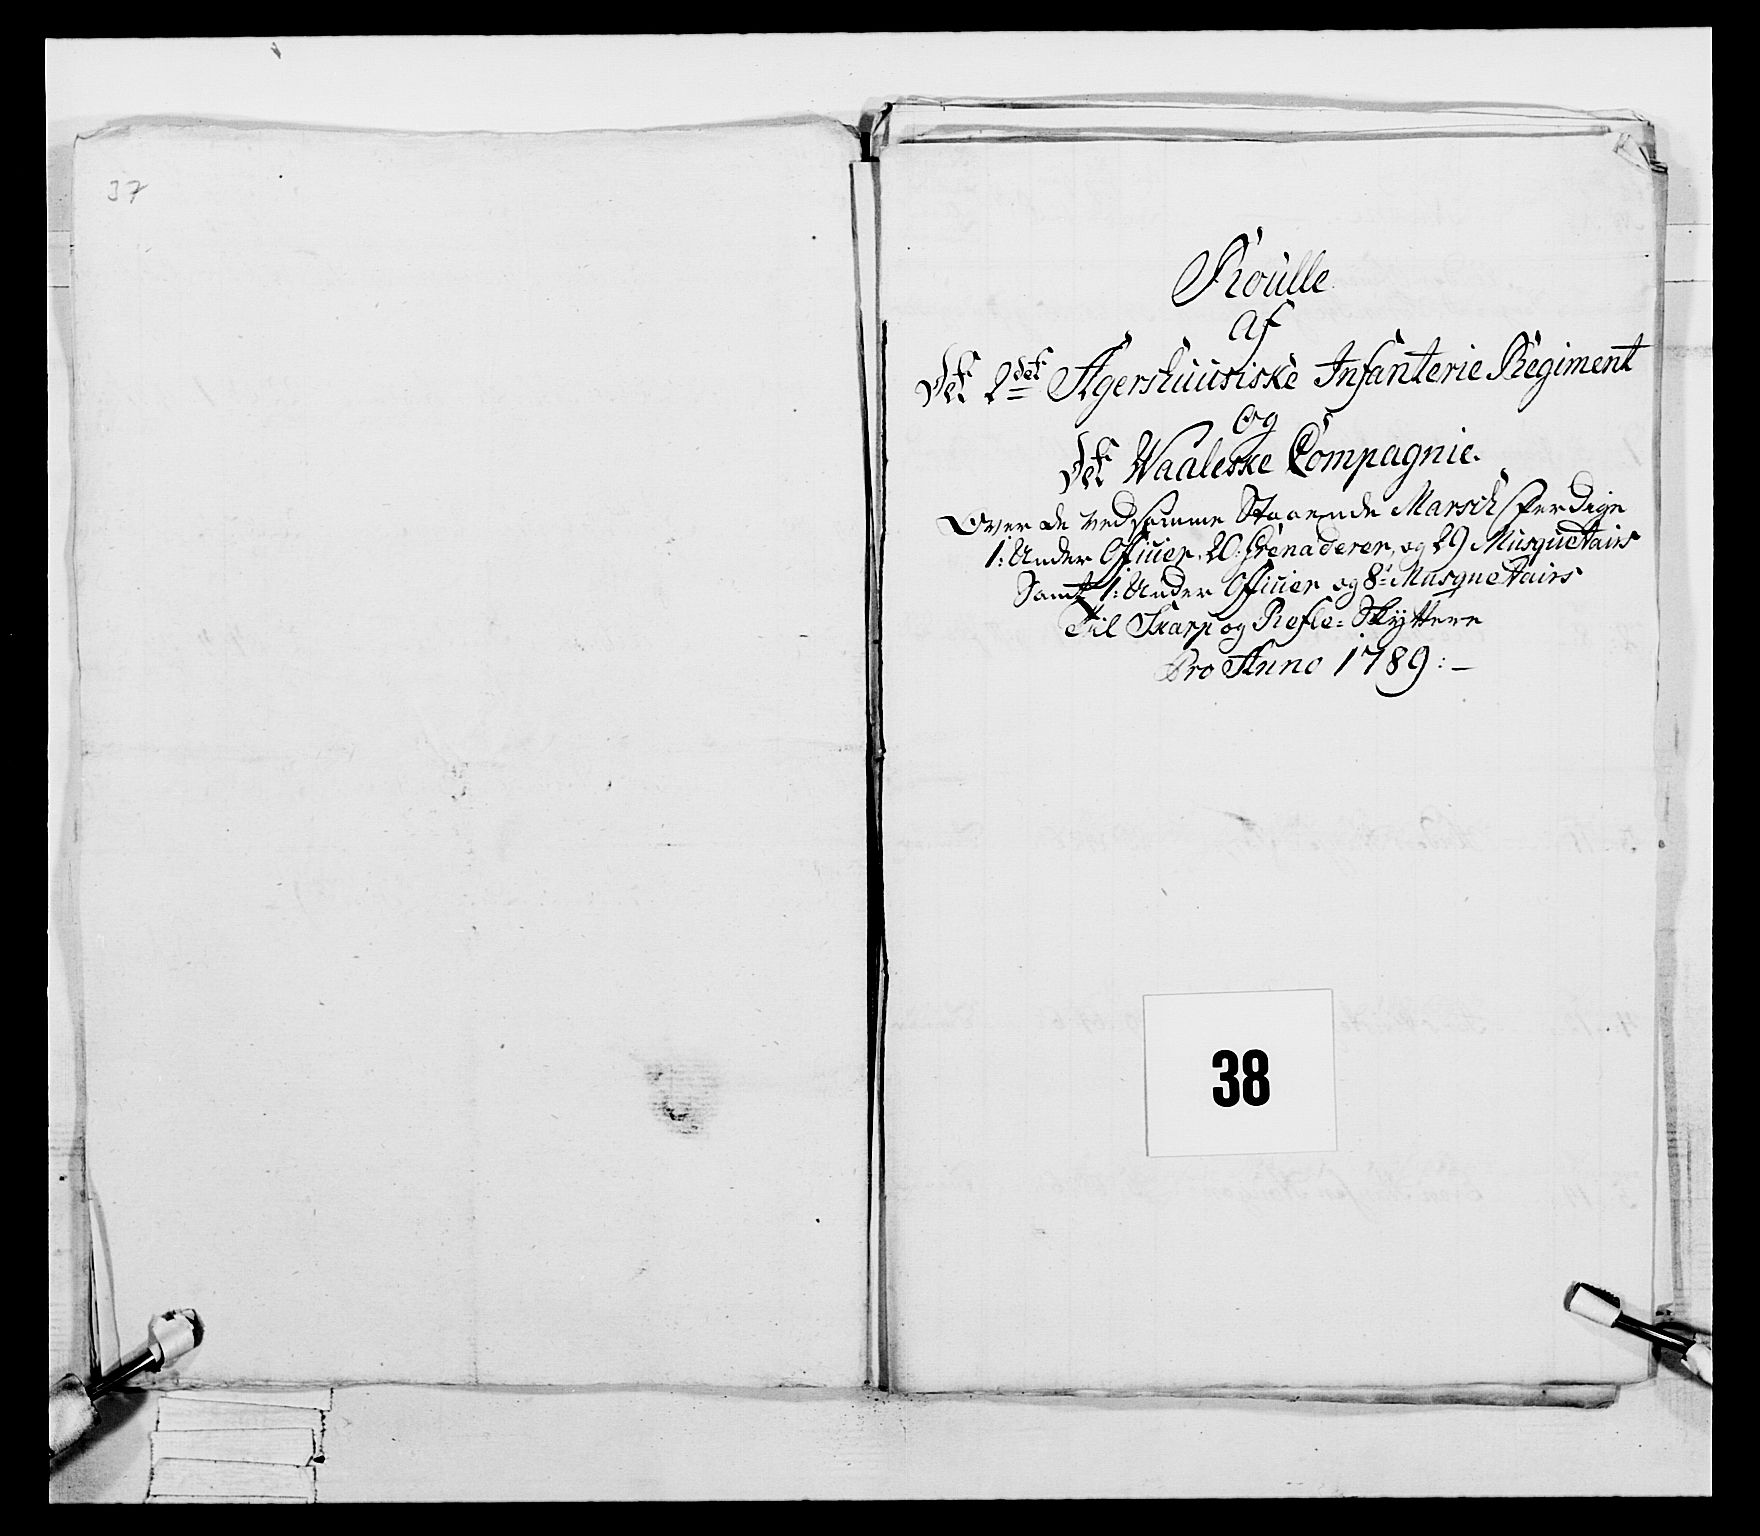 37
Roulle
af
det 2det Agershuusiske Infanterie Regiment
og
det Waaleske Compagnie.
Over de ved samme Staaende Marschferdige
1: Under Officier, 20: Grenaderer, og 29 Musquetairs
Samt 1: Under Officier og 8te Musquetairs
Til Skarp og Refle= Skyttere
Pro Anno 1789:—
38